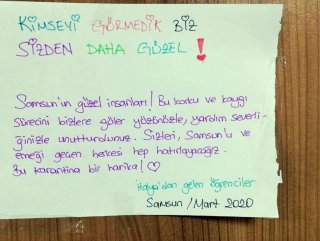 KİMSEYİ GÖRMEDİK BİZ
SİZDEN DAHA GÜZEL!
Samsun'un güzel insanları! Bu korku ve kaygı
sürecini bizlere güler yüzünüzle, yardım severli-
ğinizle unutturdunuz. Sizleri, Samsun'u ve
emeği geçen herkesi hep hatırlayacağız.
Bu karantina bir harika! ♡
İtalya'dan gelen öğrenciler
Samsun / Mart 2020